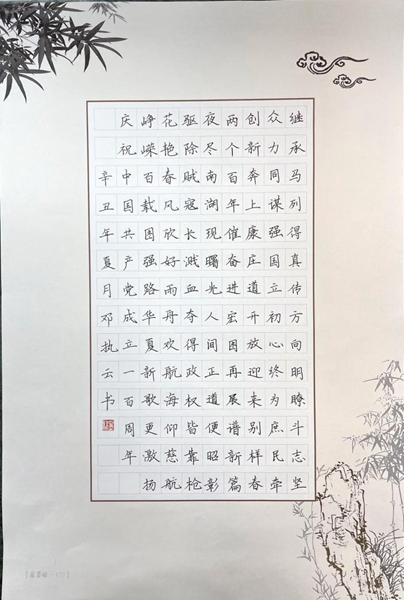 继承马列得真传方向明瞭斗志坚
众力同谋强国立初心终为庶民牵
创新奔上康庄道开放迎来别样春
两个百年催奋进宏图再展谱新篇
夜尽南湖现曙光人间正道便昭彰
驱除贼寇长溅血夺得政权皆靠枪
花艳春风欣好雨舟欢航海仰慈航
峥嵘百载图强路华夏新歌更激扬
庆祝中国共产党成立一百周年
辛丑年夏月邓执云书